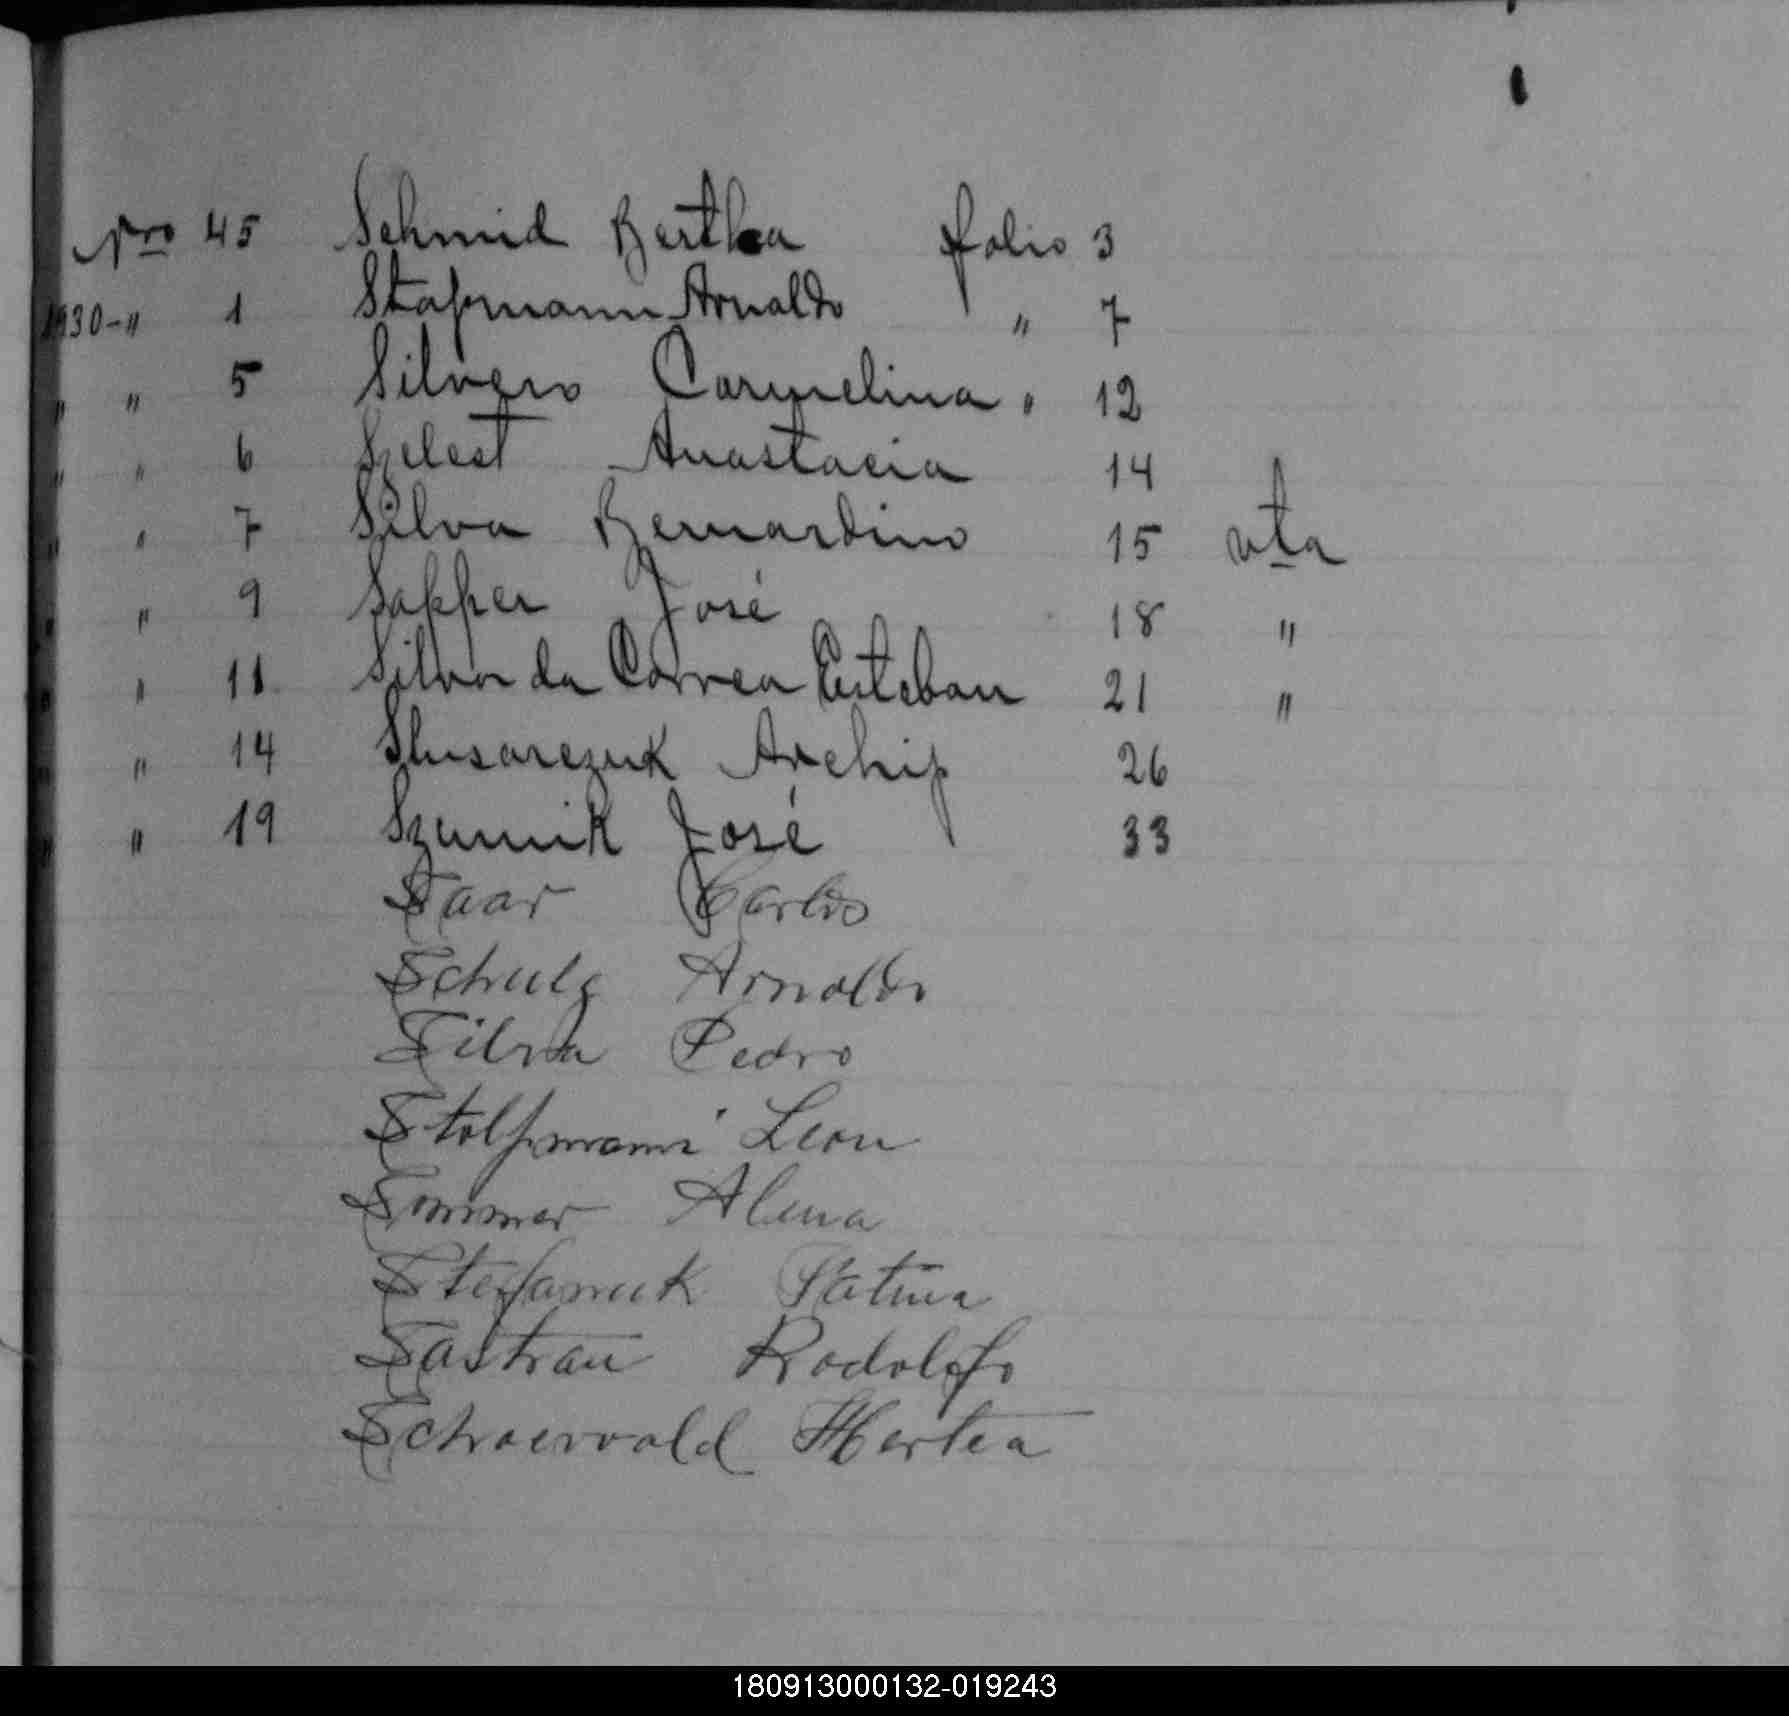 Nro 45 Schmid Bertha folio 3
1930- " 1 Stapmann Arnaldo " 7
" " 5 Silvero Carmelina " 12
" " 6 Szelest Anastacia 14
" " 7 Silva Bernardino 15 vta
" " 9 Sapper José 18 "
" " 11 Silva da Correa Esteban 21 "
" " 14 Slusarczuk Archip 26
" " 19 Szumik José 33
Saar Carlos
Schulz Arnoldo
Silva Pedro
Stolpmann Leon
Sommer Alena
Stefaniuk
Sastrau Rodolfo
Schoervald Hertea
180913000132-019243